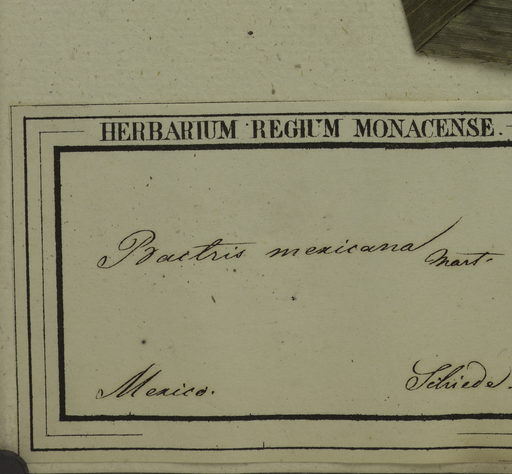 HERBARIUM REGIUM MONACENSE.
Bactris mexicana Mart.
Mexico. Schiede.